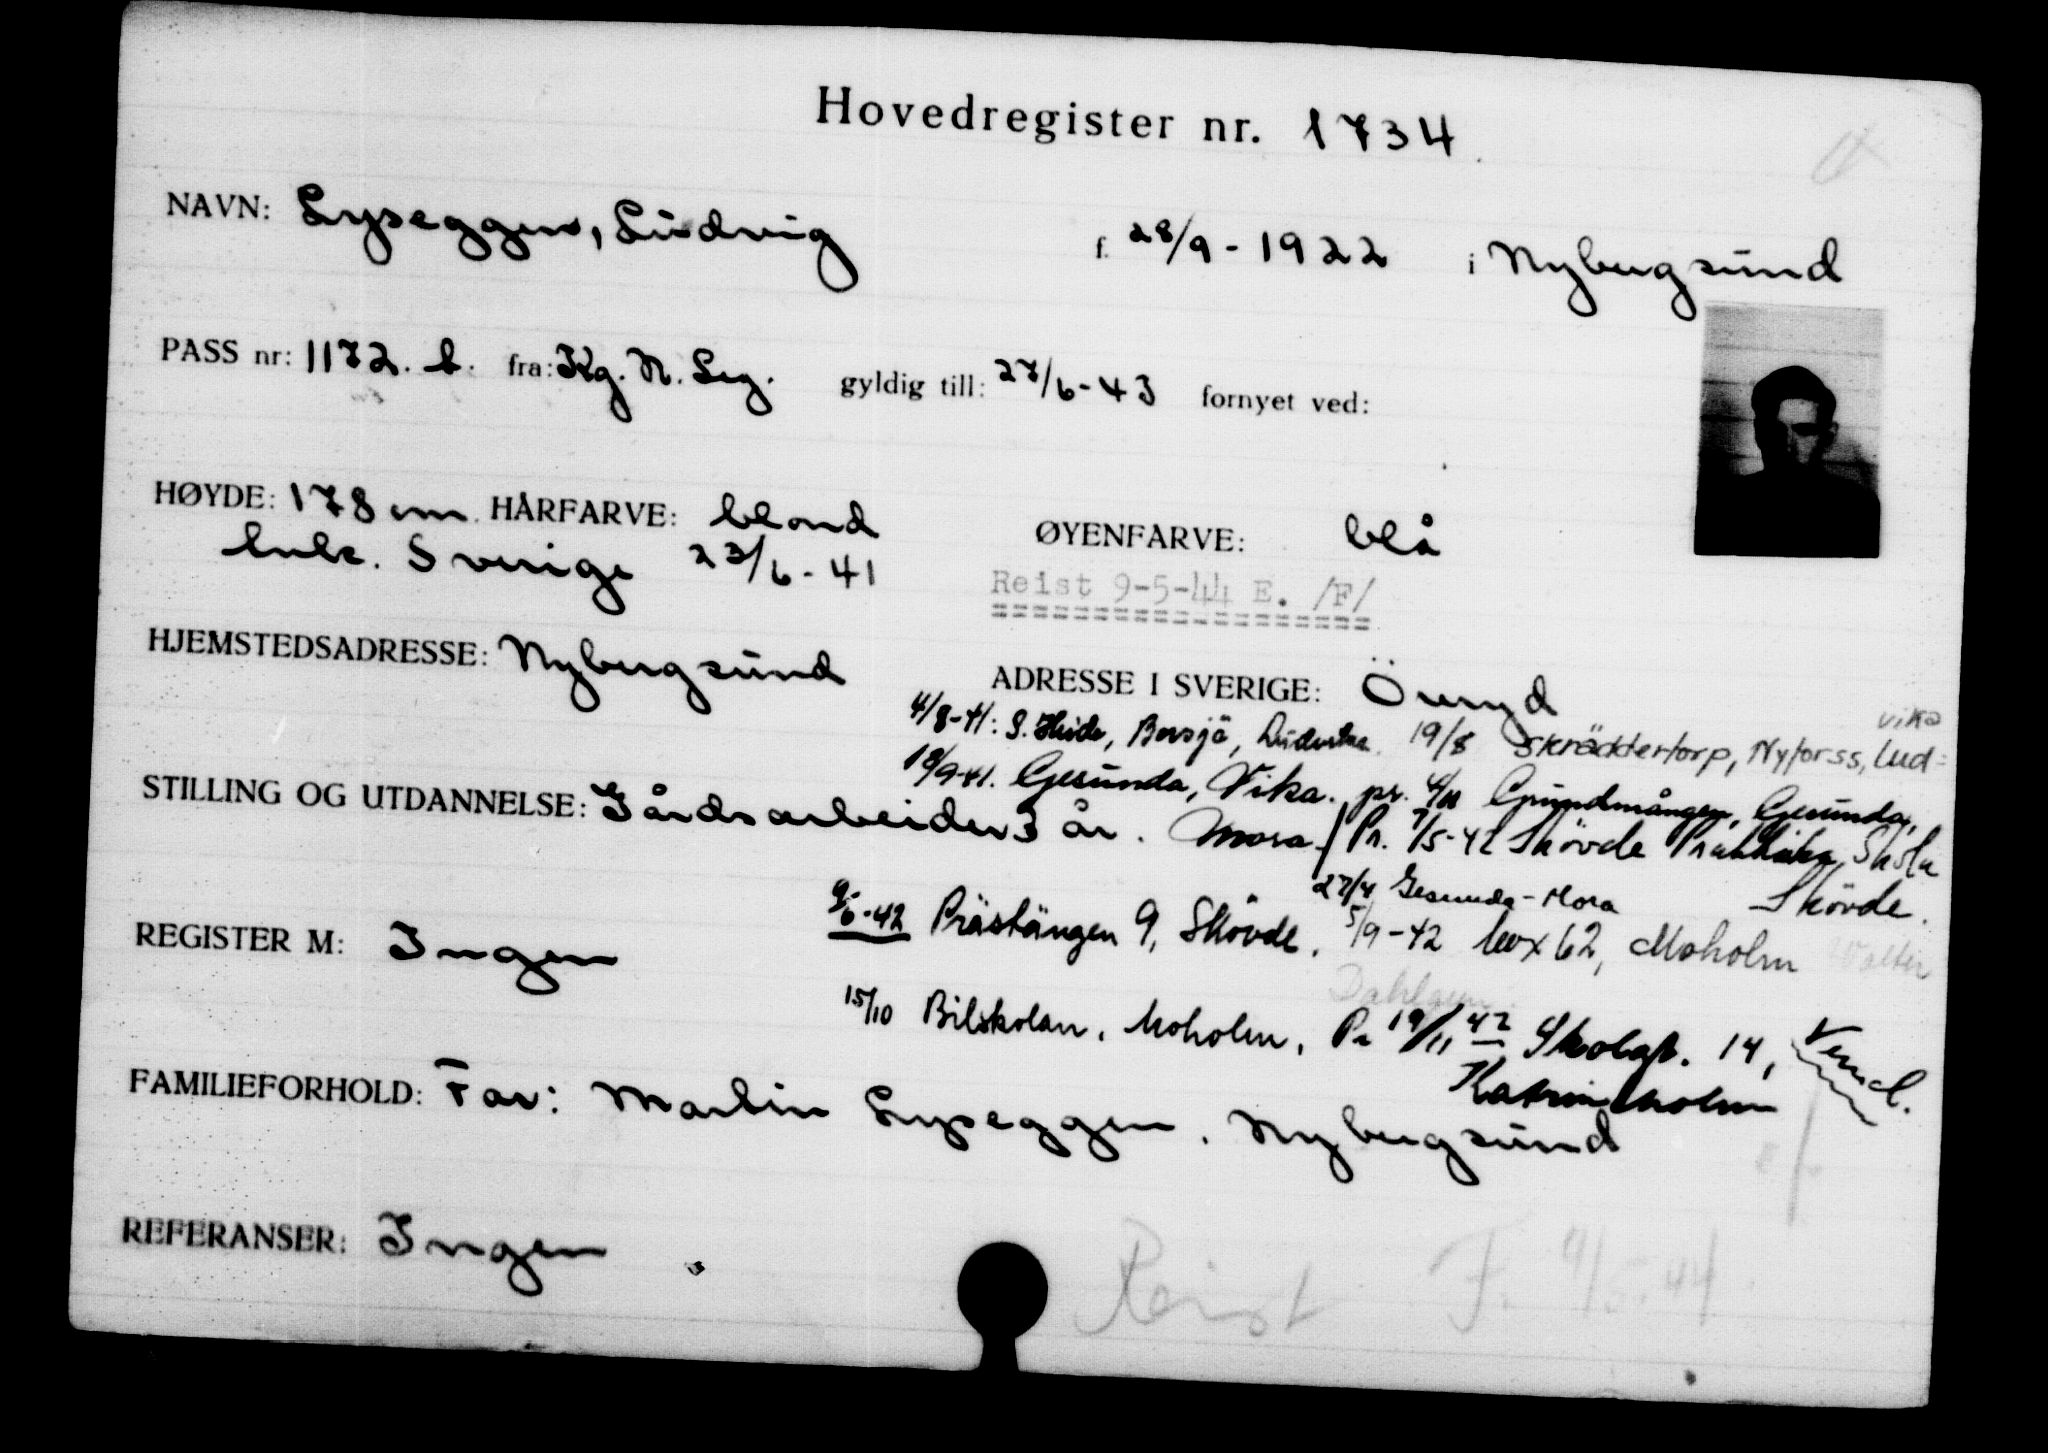 Hovedregister nr. 1734
NAVN: Lyseggen, Ludvig f. 28/9 - 1922 i Nybergsund
PASS nr: 1172. b. fra: Kg. N. Leg. gyldig till: 27/6-43 fornyet ved:
HØYDE: 178 cm HÅRFARVE: blond ØYENFARVE: blå
Sverige 23/6-41
Reist 9-5-44 E. /F/
HJEMSTEDSADRESSE: Nybergsund ADRESSE I SVERIGE: Öreryd
4/8-41: S. Heide, Borsjö, Ludvika 19/8 Skräddertorp, Nyforss, Lud=
vika
18/9-41. Gesunda, Vika. pr. 4/11 Grundmången, Gesunda,
STILLING OG UTDANNELSE: Gårdsarbeider 3 år. Mora. / Pr. 7/5-42 Skövde Praktiska Skola
27/4 Gesunda - Mora Skövde.
REGISTER M: Ingen
9/6-42 Prästängen 9, Skövde. 5/9-42 box 62, Moholm Walter
Dahlgren
15/10 Bilskolan, Moholm, Pr 19/11 42 Skolgt. 14, Vend.
Katrineholm
FAMILIEFORHOLD: Far: Martin Lyseggen. Nybergsund
REFERANSER: Ingen
Reist F. 9/5.44